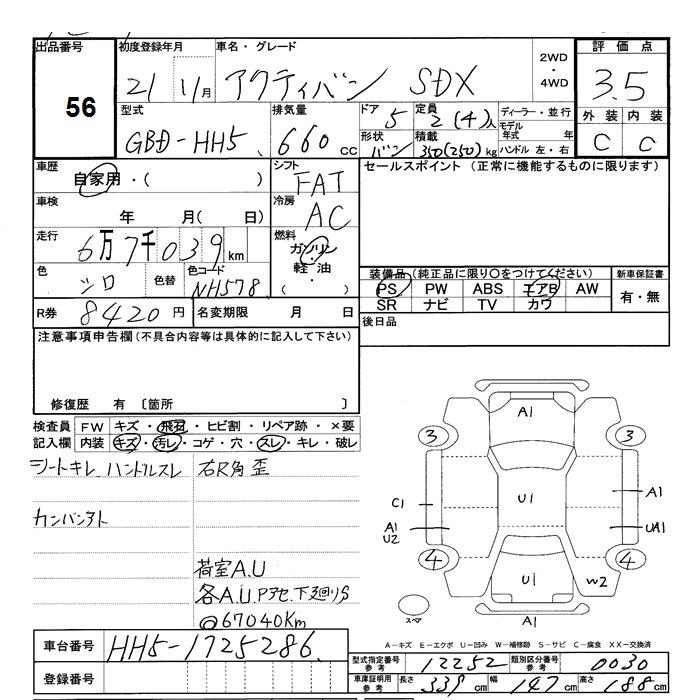 出品番号
56
初度登録年月
21 11月
車名・グレード
アクティバン SDX
2WD
・
4WD
評価点
3.5
型式
GBD-HH5
排気量
660 cc
ドア 5
定員 2(4)人
ディーラー・並行
モデル年式 年
形状 バン
積載 350(250)kg
ハンドル 左・右
外装 内装
C C
車歴
自家用・( )
シフト
FAT
セールスポイント (正常に機能するものに限ります)
車検
年 月( 日)
冷房
AC
走行
6万7千039km
燃料
ガソリン
軽油
( ・ )
色
シロ
色替
色コード
NH578
装備品 (純正品に限り○をつけてください)
新車保証書
PS PW ABS エアB AW
有・無
SR ナビ TV カワ
R券 8420円
名変期限 月 日
後日品
注意事項申告欄(不具合内容等は具体的に記入して下さい)
修復歴 有 〔箇所 〕
検査員 FW キズ・飛石・ヒビ割・リペア跡・×要
記入欄 内装 キズ・汚レ・コゲ・穴・スレ・キレ・破レ
シートキレ ハンドルスレ 右R角歪
カンバンアト
荷室A.U
各A.U
下廻りS
@67040Km
A1
3
3
U1
C1
A1
A1
U2
UA1
4
4
U1
W2
スペア
A1
A-キズ E-エクボ U-凹み W-補修跡 S-サビ C-腐食 XX-交換済
車台番号 HH5-1725286
登録番号
型式指定番号 参考 12252
類別区分番号 参考 0030
車庫証明用 参考 長さ 339cm 幅 147cm 高さ 188cm